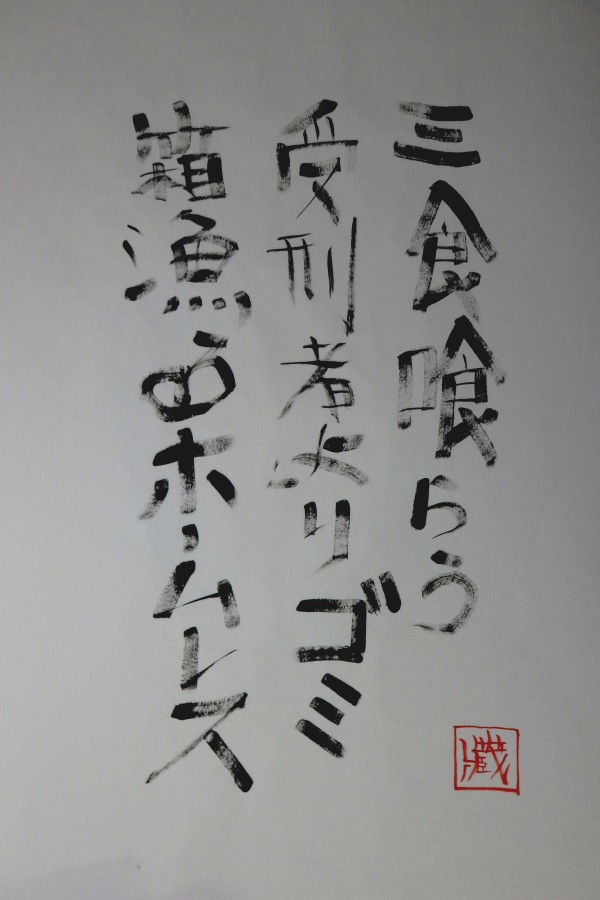 三食喰らう
受刑者よりゴミ
箱漁るホームレス